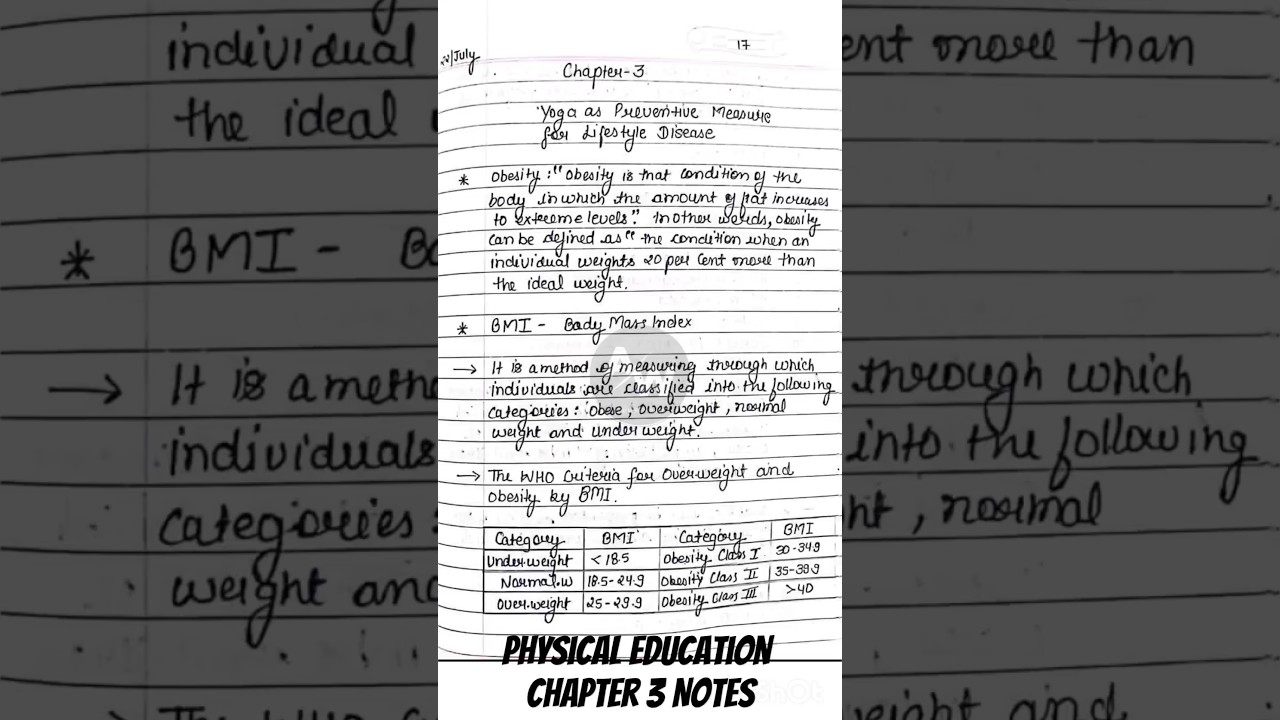 17
/July
Chapter-3
Yoga as Preventive Measure
for Lifestyle Disease
* Obesity : "Obesity is that condition of the
body in which the amount of fat increases
to extreme levels." In other words, obesity
can be defined as "the condition when an
individual weights 20 per cent more than
the ideal weight.
* BMI - Body Mass Index
→ It is a method of measuring through which
individuals are classified into the following
categories : obese, overweight, normal
weight and underweight.
→ The WHO Criteria for Overweight and
Obesity by BMI.
Category BMI Category BMI
Underweight < 18.5 Obesity Class I 30-34.9
Normal w 18.5-24.9 Obesity Class II 35-39.9
Overweight 25-29.9 Obesity Class III >40
PHYSICAL EDUCATION
CHAPTER 3 NOTES
individual
the ideal
* BMI -
→ It is a
individuals
categories:
weight and
ent more than
through which
into the following
ht, normal